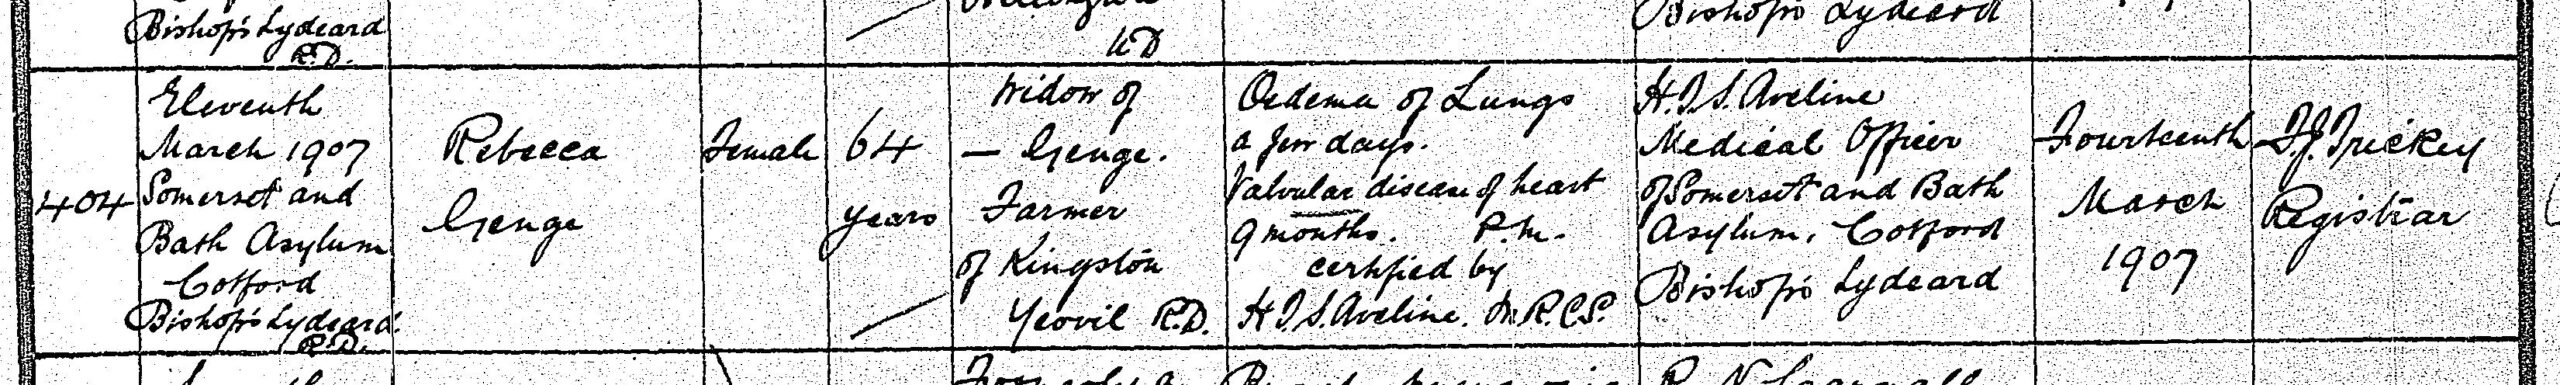 Bishop's Lydeard
R.D.
U.D
Bishop's Lydeard
404
Eleventh
March 1907
Somerset and
Bath Asylum
Cotford
Bishop's Lydeard
R.D.
Rebecca
Genge
Female
64
years
Widow of
— Genge.
Farmer
of Kingston
Yeovil R.D.
Oedema of Lungs
a few days.
Valvular disease of heart
9 months. P.M.
certified by
H.T.S. Aveline. M.R.C.S.
H.T.S. Aveline
Medical Officer
of Somerset and Bath
Asylum, Cotford
Bishop's Lydeard
Fourteenth
March
1907
F.J. Trickey
Registrar